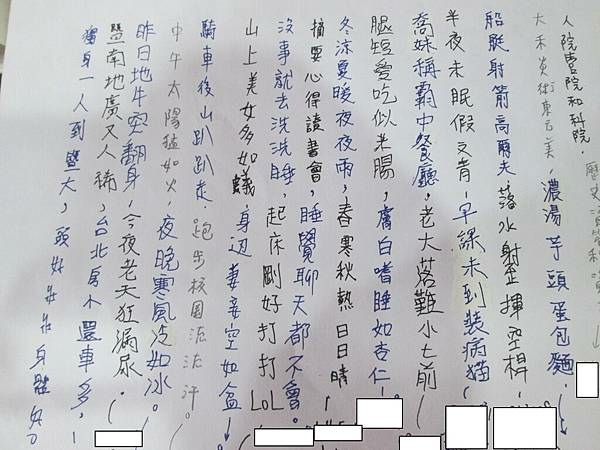 人院曹院和科院.歷史資管和
大禾炎術東云美,濃湯芋頭蛋包麵.
船艇射箭高爾夫 落水射歪揮空桿.
半夜未眠假文青,早課未到裝病貓
喬妹稱霸中餐廳,老大落難小七前
腿短愛吃似米腸,膚白嗜睡如杏仁
冬涼夏暖夜夜雨,春寒秋熱日日晴
摘要心得讀書會,睡覺聊天都不會。
沒事就去洗洗睡,起床剛好打打LOL
山上美女多如蟻,身邊妻妾空如盒。
騎車後山趴趴走 跑步校園流流汗。
中午太陽猛如火,夜晚寒風冷如冰。
昨日地牛突翻身,今夜老天狂漏尿.
暨南地廣又人稀,台北房小還車多,
獨身一人到暨大,頭好壯壯身體好